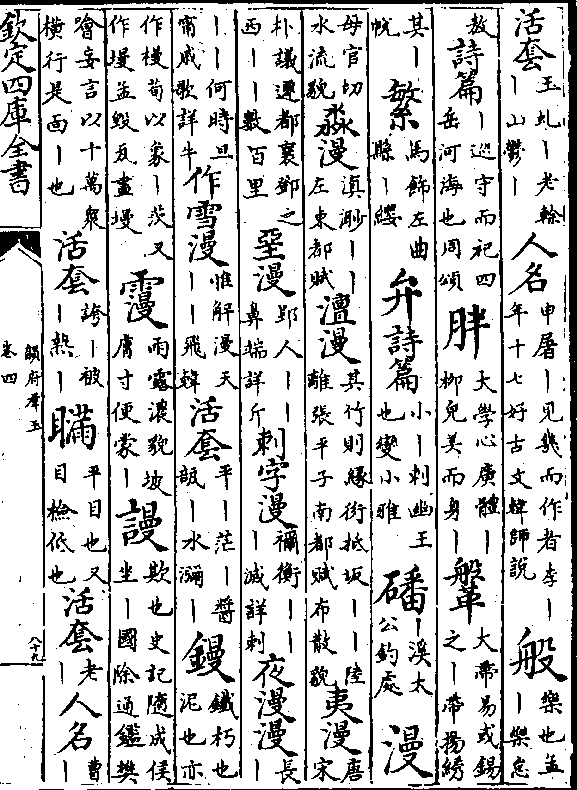 活套玉虬丨老幹丨山鬱丨人名申屠丨見幾而作者李丨年十七好古文韓師說般樂也並丨樂怠
敖詩篇丨巡守而祀四岳河海也周頌胖大學心廣體丨柳兒美而身丨鞶大帶易或錫之丨帶揚繡
其丨帨繁馬飾左曲縣丨纓弁詩篇小丨刺幽王也變小雅磻丨溪太公釣處漫
母官切水流貌淼漫滇淼丨丨左東都賦澶漫其竹則緣衍抵坂丨丨陸離張平子南都賦布散貌夷漫唐宋
朴議遷都襄鄧之西丨丨數百里堊漫郢人丨丨鼻端詳斤刺字漫禰衡丨丨丨滅詳刺夜漫漫長丨
丨丨何時旦甯戚歌詳牛作雪漫惟解漫天丨丨飛韓活套平丨茫丨醬瓿丨水瀰丨鏝鐵朽也泥也亦
作槾荀以象丨茨又作墁孟毀瓦畫墁霢雨露濃貌坡膚寸便蒙丨謾欺也史記隨成侯坐丨國除通鑑樊
噲妄言以十萬衆橫行是面丨也活套誇丨被丨熱丨瞞平目也又目檢低也活套老丨人名曹丨
欽定四庫全書
韻府羣玉
卷四
八十九